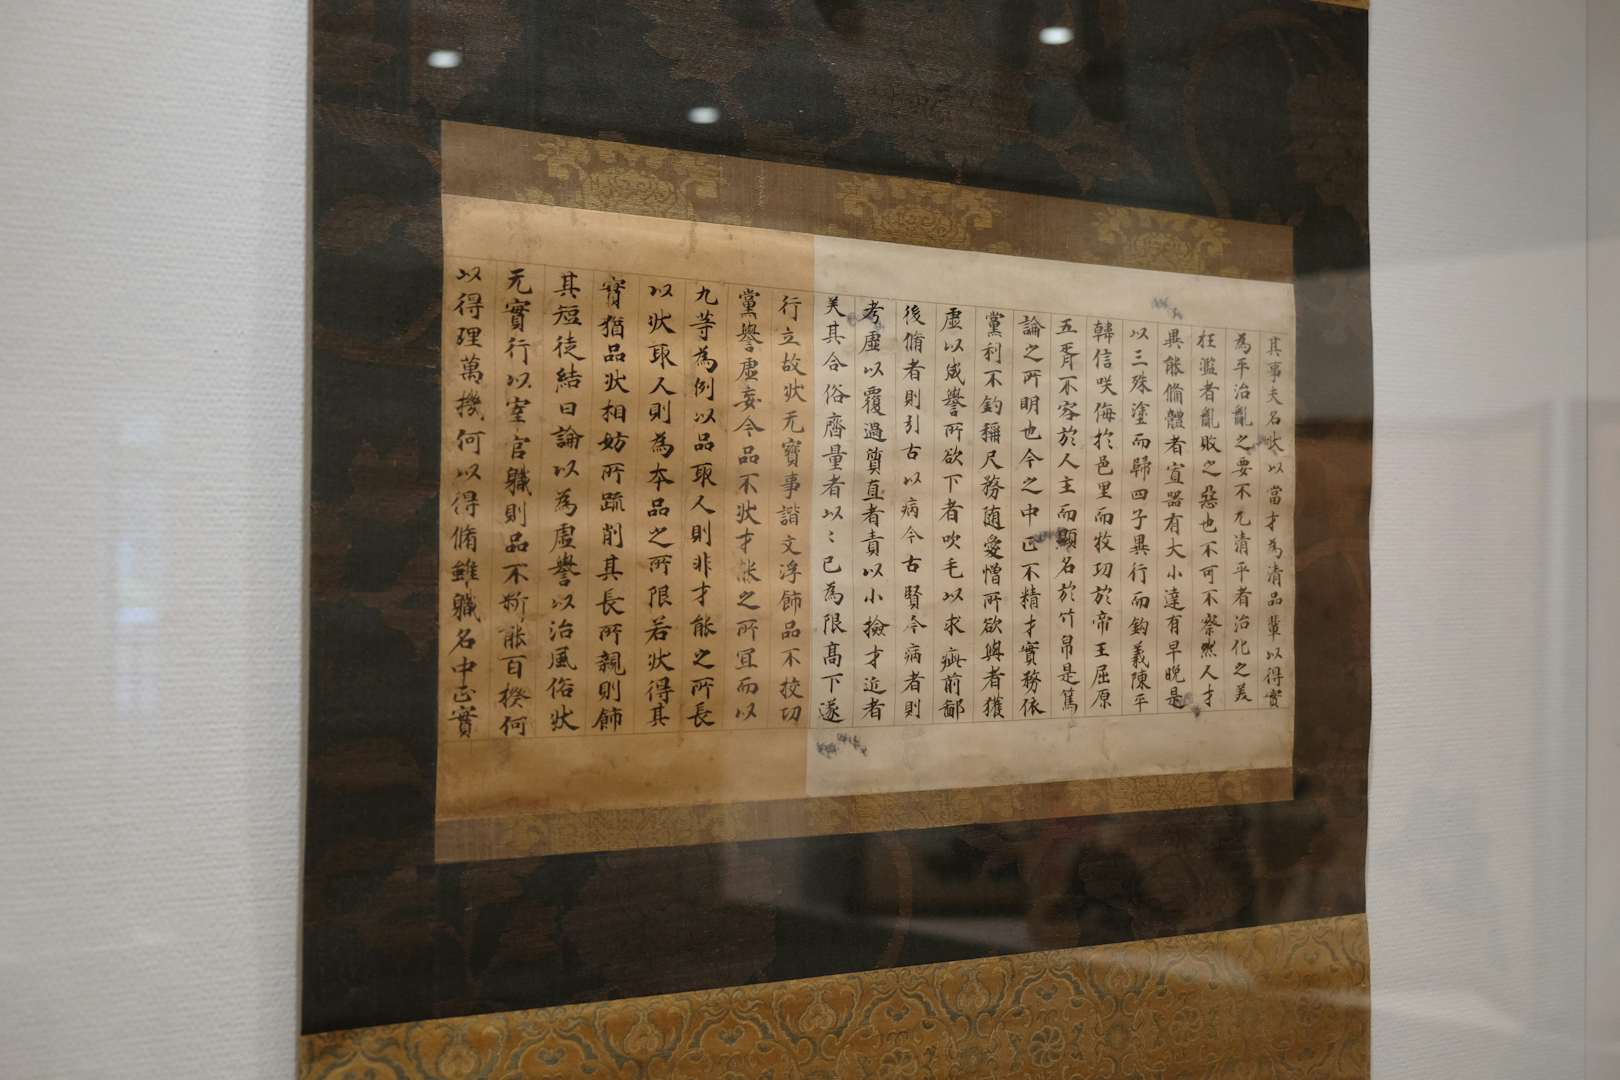 其事夫名状以當才為清品輩以得實
為平治亂之要不九清平者治化之美
狂濫者亂敗之惡也不可不察然人才
異能俻體者宣器有大小達有早晚是
以三殊塗而歸四子異行而鈞義陳平
韓信咲侮於邑里而牧功於帝王屈原
五胥不容於人主而顯名於竹帛是篤
論之所明也今之中正不精才實務依
黨利不鈞稱尺務随愛憎所欲與者獲
虛以成譽所欲下者吹毛以求疵前鄙
後脩者則引古以病今古賢今病者則
考虛以覆過質直者責以小撿才近者
美其合俗齊量者以〻已為限高下遂
行立故状无實事諧文浮飾品不挍功
黨譽虛妄今品不状才能之所宜而以
九等為例以品取人則非才能之所長
以状取人則為本品之所限若状得其
實猶品状相妨所䟽削其長所親則飾
其短徒結日論以為虛譽以治風俗状
无實行以宰官軄則品不断能百揆何
以得理萬機何以得脩雖軄名中正實